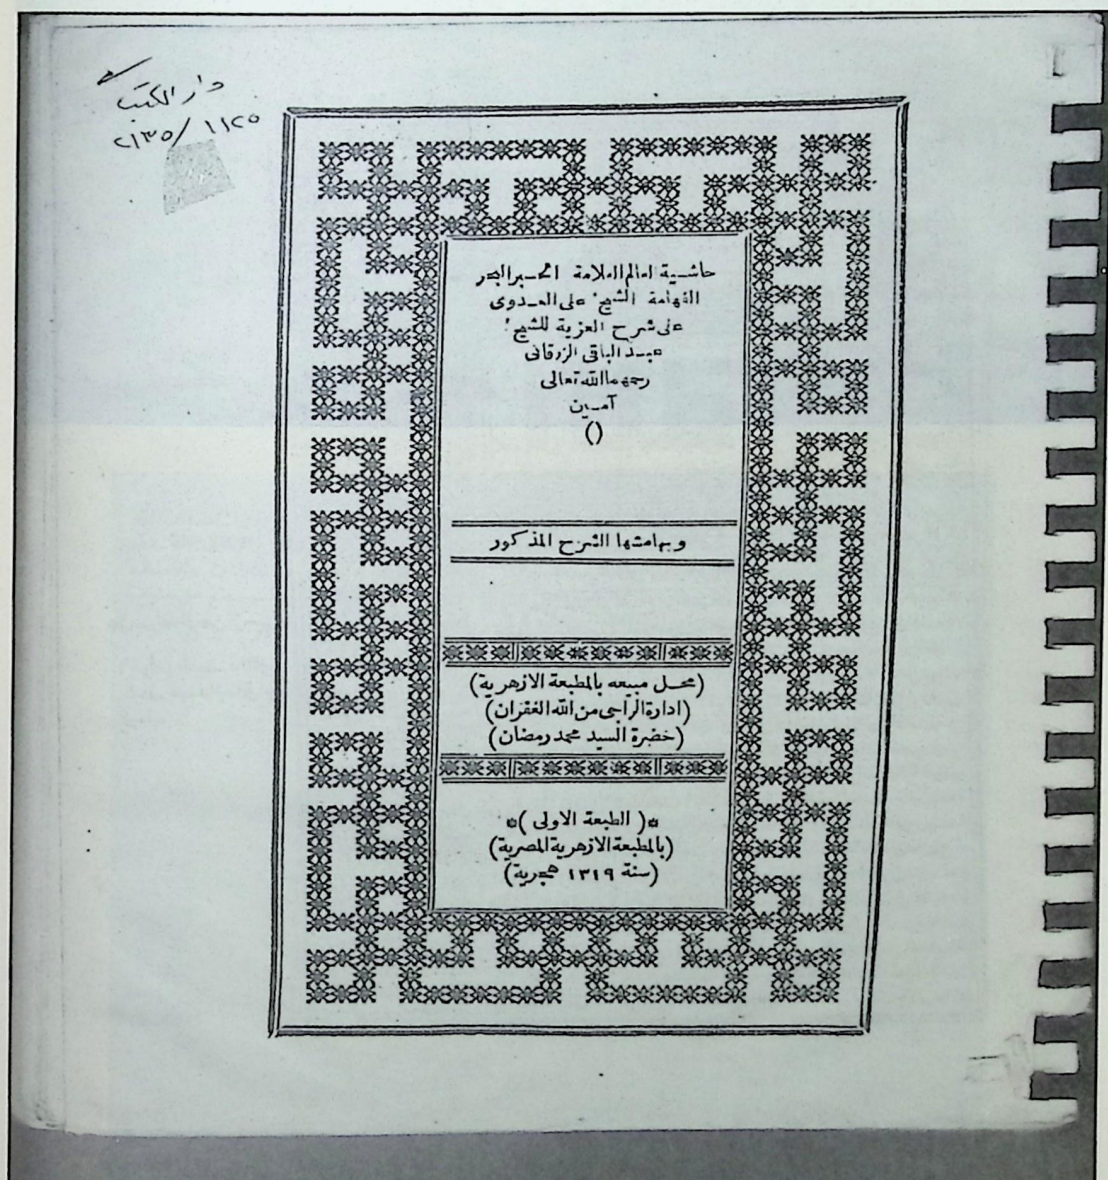 دار الكتب
٢١٣٥/ ١١٢٥
حاشية العالم العلامة الحبر البحر
الفهامة الشيخ على العدوى
على شرح العزية للشيخ
عبد الباقى الزرقانى
رحمهما الله تعالى
آمين
()
وبهامشها الشرح المذكور
(محل مبيعه بالمطبعة الازهرية)
(ادارة الراجى من الله الغفران)
(حضرة السيد محمد رمضان)
*( الطبعة الاولى )*
(بالمطبعة الازهرية المصرية)
(سنة ١٣١٩ هجرية)